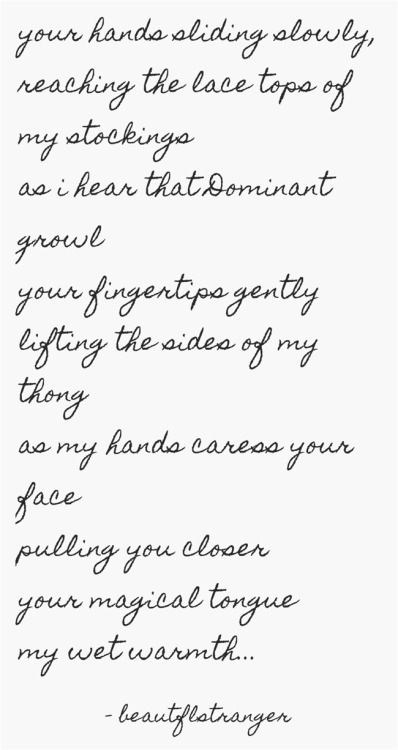 your hands sliding slowly,
reaching the lace tops of
my stockings
as i hear that Dominant
growl
your fingertips gently
lifting the sides of my
thong
as my hands caress your
face
pulling you closer
your magical tongue
my wet warmth...
- beautflstranger